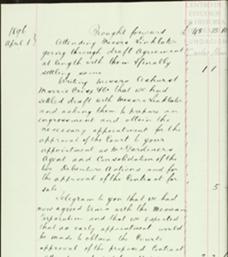 1896 Brought forward £
April 1 Attending Messrs Linklater
going through draft Agreement
at length with them & finally
settling same 1 1
Writing Messrs Ashurst
Morris Crisp & Co that we had
settled draft with Messrs Linklater
and asking them to prepare an
engrossment and obtain the
necessary appointment for the
approval of the Court to your
appointment as Mr Gardiners
Agent and Consolidation of the
two Debenture Actions and for
the approval of the Contract for
sale 5
Telegram to you that we had
now agreed terms with the
Corporation and that we expected
that an early appointment would
be made to obtain the Courts
approval of the proposed Contract